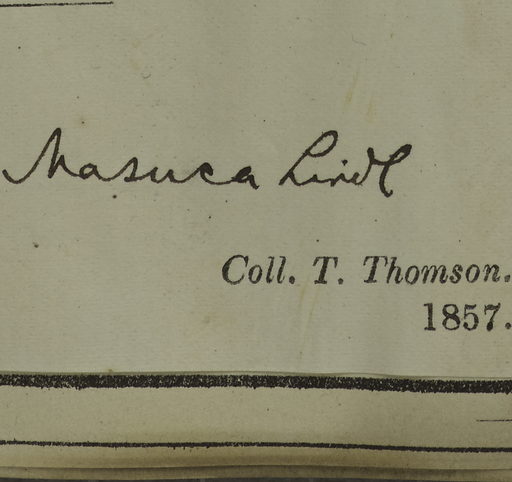 Masuca Lindl
Coll. T. Thomson.
1857.